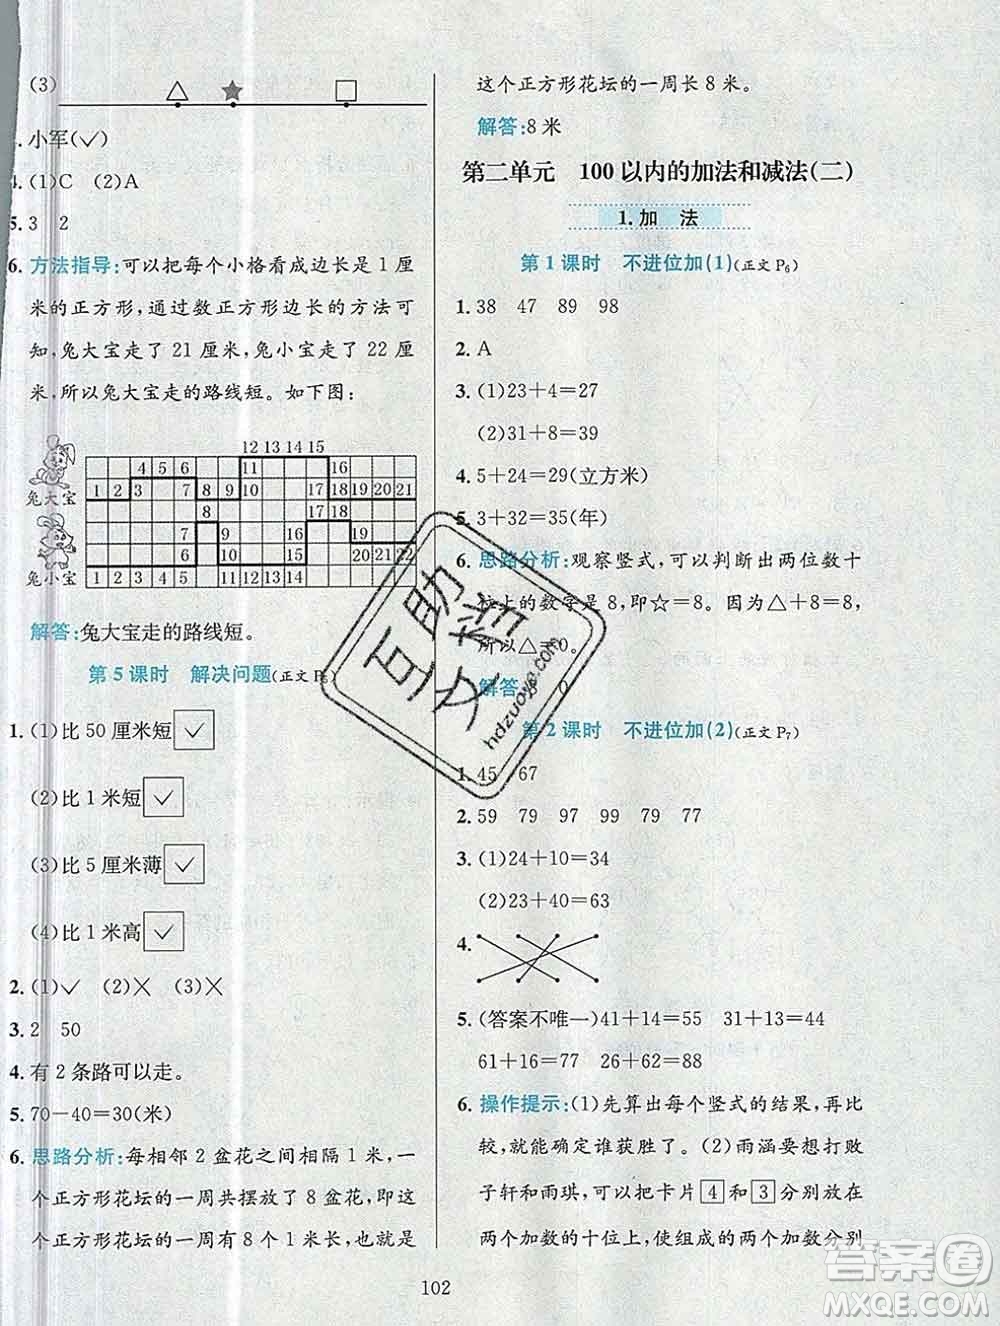 (3)
小军(✓)
4. (1)C (2)A
5. 3 2
6. 方法指导:可以把每个小格看成边长是 1 厘
米的正方形，通过数正方形边长的方法可
知，兔大宝走了 21 厘米，兔小宝走了 22 厘
米，所以兔大宝走的路线短。如下图：
12 13 14 15
4 5 6 11 16
兔大宝 1 2 3 7 8 9 10 17 18 19 20 21
8 17 18
7 9 16 19
20 21 22
兔小宝 1 2 3 4 5 6 10 11 12 13 14 15
解答:兔大宝走的路线短。
第 5 课时 解决问题(正文 P5)
1. (1)比 50 厘米短 ✓
(2)比 1 米短 ✓
(3)比 5 厘米薄 ✓
(4)比 1 米高 ✓
2. (1)✓ (2)✕ (3)✕
3. 2 50
4. 有 2 条路可以走。
5. 70－40＝30(米)
6. 思路分析:每相邻 2 盆花之间相隔 1 米，一
个正方形花坛的一周共摆放了 8 盆花，即这
个正方形花坛的一周有 8 个 1 米长，也就是
这个正方形花坛的一周长 8 米。
解答:8 米
第二单元 100 以内的加法和减法(二)
1. 加 法
第 1 课时 不进位加(1)(正文 P6)
1. 38 47 89 98
2. A
3. (1)23＋4＝27
(2)31＋8＝39
4. 5＋24＝29(立方米)
5. 3＋32＝35(年)
6. 思路分析:观察竖式，可以判断出两位数十
位上的数字是 8，即☆＝8。因为△＋8＝8，
所以△＝0。
解答:8 0
第 2 课时 不进位加(2)(正文 P7)
1. 45 67
2. 59 79 97 99 79 77
3. (1)24＋10＝34
(2)23＋40＝63
4.
5. (答案不唯一)41＋14＝55 31＋13＝44
61＋16＝77 26＋62＝88
6. 操作提示:(1)先算出每个竖式的结果，再比
较，就能确定谁获胜了。(2)雨涵要想打败
子轩和雨琪，可以把卡片 4 和 3 分别放在
两个加数的十位上，使组成的两个加数分别
102
百助文档
hdzuoye.com
答案圈
MXQE.COM